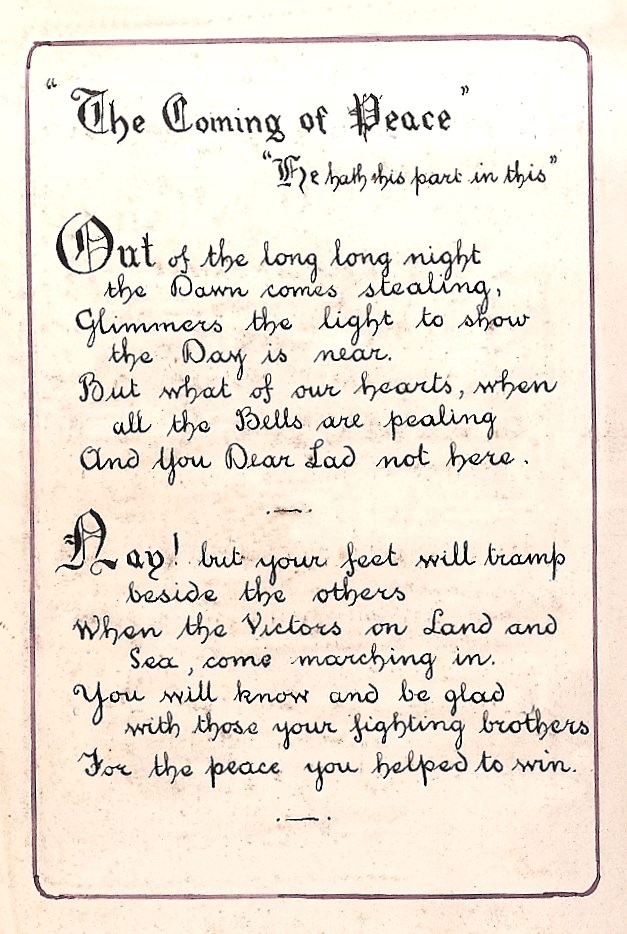 "The Coming of Peace"
"He hath his part in this"
Out of the long long night
the Dawn comes stealing,
Glimmers the light to show
the Day is near.
But what of our hearts, when
all the Bells are pealing
And You Dear Lad not here.
Nay! but your feet will tramp
beside the others
When the Victors on Land and
Sea, come marching in.
You will know and be glad
with those your fighting brothers
For the peace you helped to win.